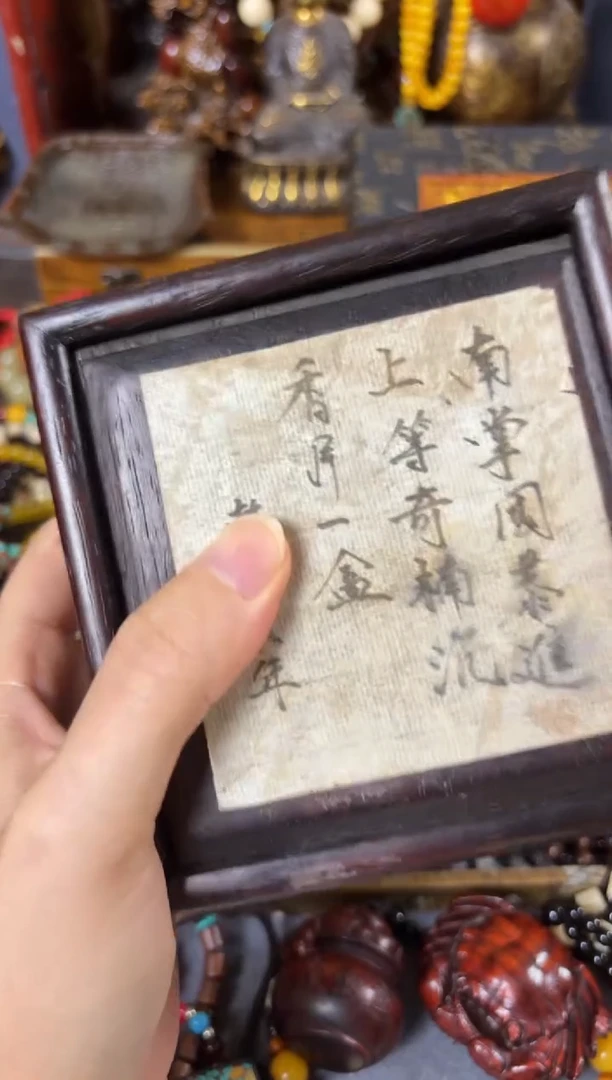 南掌国恭進
上等奇楠沉
香片一盒
年